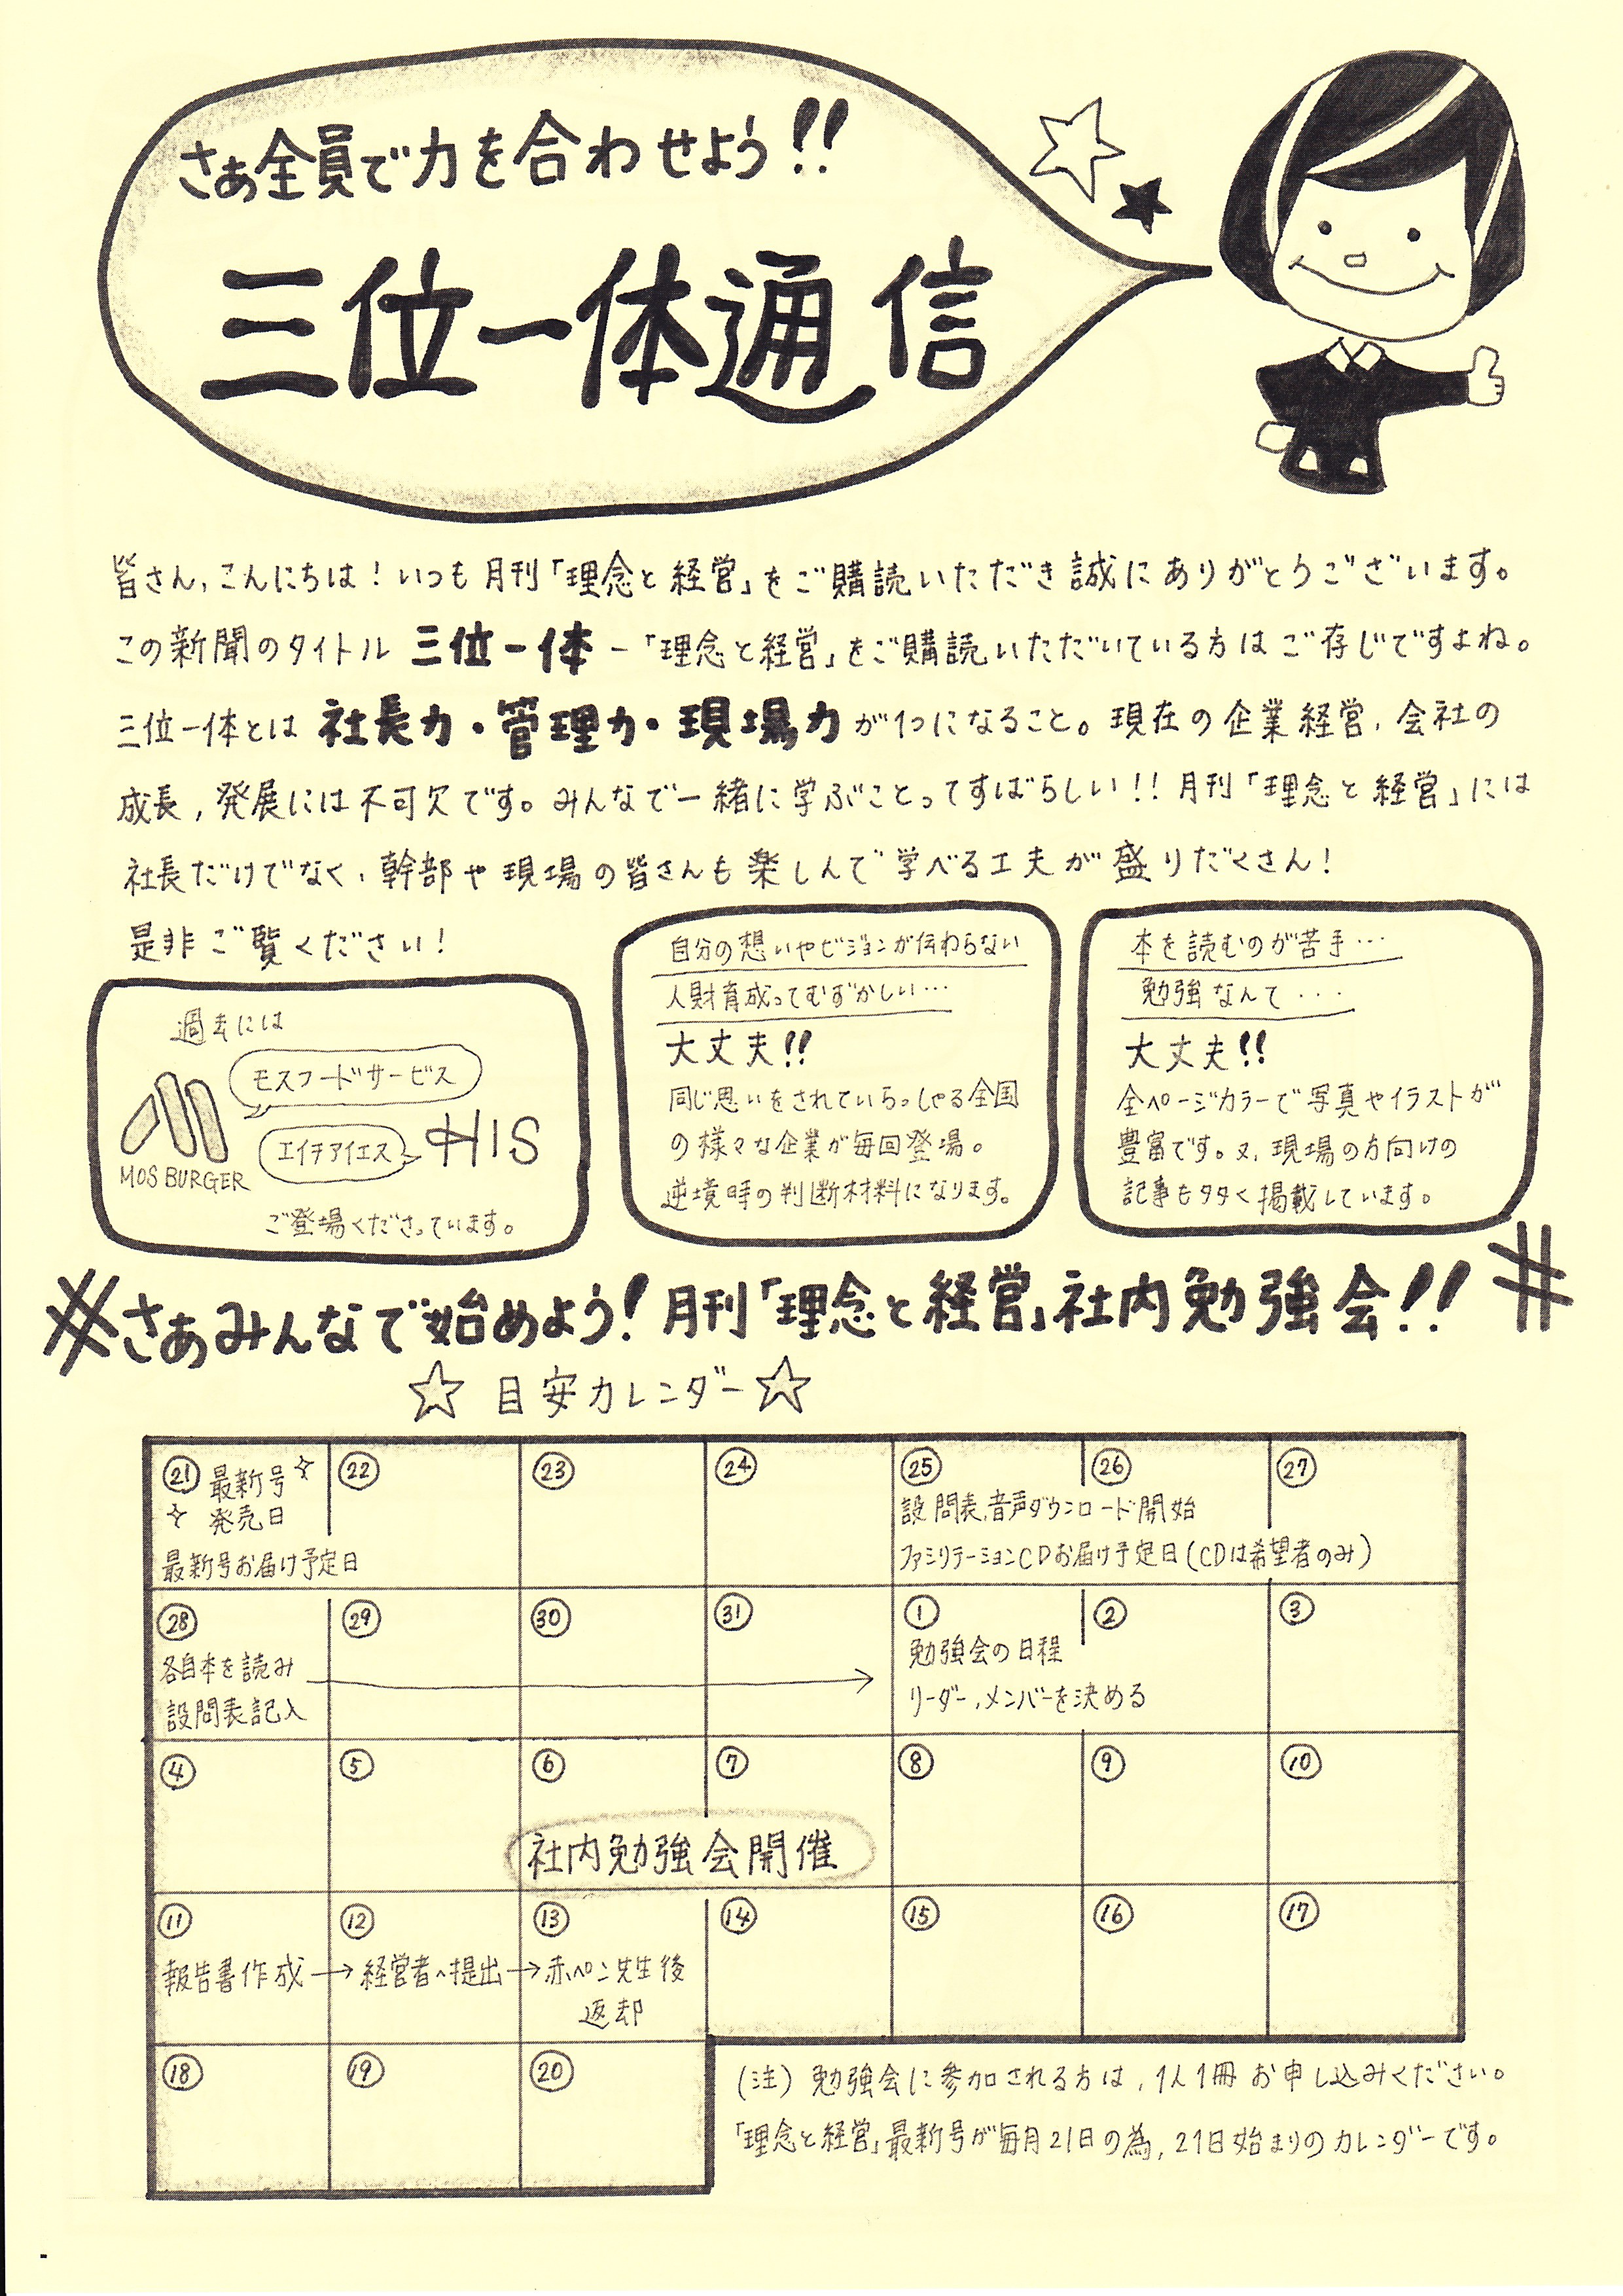 さぁ全員で力を合わせよう!!
三位一体通信
皆さん、こんにちは！いつも月刊「理念と経営」をご購読いただき誠にありがとうございます。
この新聞のタイトル 三位一体 ー「理念と経営」をご購読いただいている方はご存じですよね。
三位一体とは 社長力・管理力・現場力 が1つになること。現在の企業経営、会社の
成長、発展には不可欠です。みんなで一緒に学ぶことってすばらしい!! 月刊「理念と経営」には
社長だけでなく、幹部や現場の皆さんも楽しんで学べる工夫が盛りだくさん！
是非ご覧ください！
過去には
モスフードサービス
MOS BURGER
エイチアイエス
HIS
ご登場くださっています。
自分の想いやビジョンが伝わらない
人財育成ってむずかしい…
大丈夫!!
同じ思いをされていらっしゃる全国
の様々な企業が毎回登場。
逆境時の判断材料になります。
本を読むのが苦手…
勉強なんて…
大丈夫!!
全ページカラーで写真やイラストが
豊富です。又、現場の方向けの
記事も多く掲載しています。
さぁみんなで始めよう！月刊「理念と経営」社内勉強会!!
☆目安カレンダー☆
㉑ 最新号
発売日
最新号お届け予定日
㉒
㉓
㉔
㉕ ㉖ ㉗
設問表、音声ダウンロード開始
ファシリテーションCDお届け予定日(CDは希望者のみ)
㉘
各自本を読み
設問表記入
㉙
㉚
㉛
① ②
勉強会の日程
リーダー、メンバーを決める
③
④ ⑤ ⑥ ⑦ ⑧ ⑨ ⑩
社内勉強会開催
⑪ ⑫ ⑬ ⑭ ⑮ ⑯ ⑰
報告書作成→経営者へ提出→赤ペン先生後
返却
⑱ ⑲ ⑳
(注) 勉強会に参加される方は、1人1冊お申し込みください。
「理念と経営」最新号が毎月21日の為、21日始まりのカレンダーです。